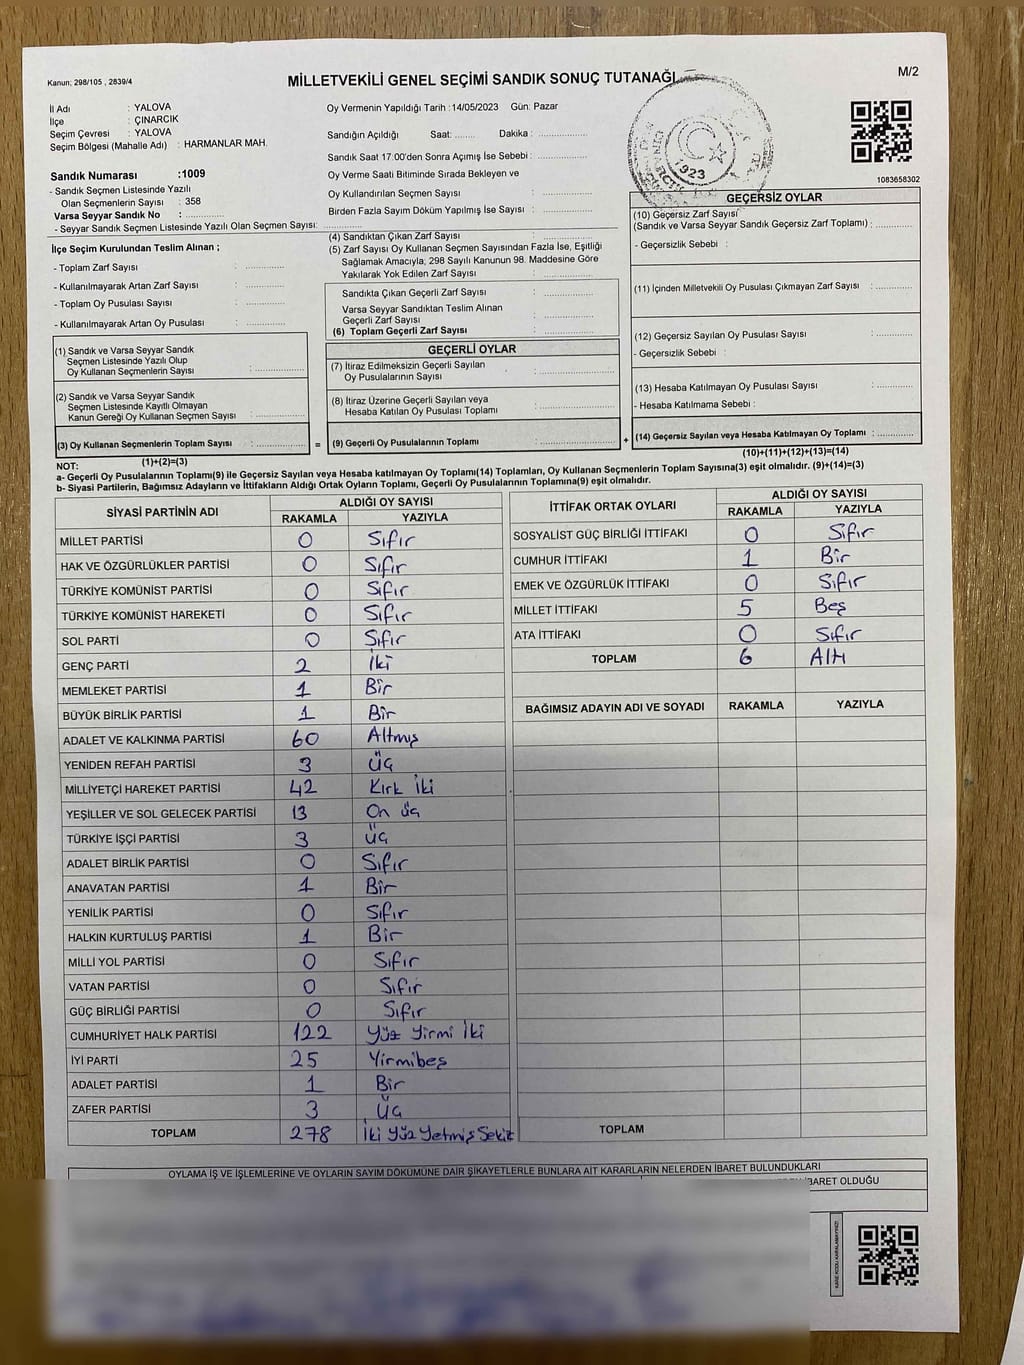 Kanun; 298/105 , 2839/4
MİLLETVEKİLİ GENEL SEÇİMİ SANDIK SONUÇ TUTANAĞI
M/2
İl Adı : YALOVA
İlçe : ÇINARCIK
Seçim Çevresi : YALOVA
Seçim Bölgesi (Mahalle Adı) : HARMANLAR MAH.
Sandık Numarası :1009
- Sandık Seçmen Listesinde Yazılı
Olan Seçmenlerin Sayısı : 358
Varsa Seyyar Sandık No :
- Seyyar Sandık Seçmen Listesinde Yazılı Olan Seçmen Sayısı:
Oy Vermenin Yapıldığı Tarih :14/05/2023 Gün: Pazar
Sandığın Açıldığı Saat: Dakika :
Sandık Saat 17:00'den Sonra Açımış İse Sebebi :
Oy Verme Saati Bitiminde Sırada Bekleyen ve
Oy Kullandırılan Seçmen Sayısı :
Birden Fazla Sayım Döküm Yapılmış İse Sayısı :
1923
1083658302
İlçe Seçim Kurulundan Teslim Alınan ;
- Toplam Zarf Sayısı :
- Kullanılmayarak Artan Zarf Sayısı :
- Toplam Oy Pusulası Sayısı :
- Kullanılmayarak Artan Oy Pusulası :
(1) Sandık ve Varsa Seyyar Sandık
Seçmen Listesinde Yazılı Olup
Oy Kullanan Seçmenlerin Sayısı :
(2) Sandık ve Varsa Seyyar Sandık
Seçmen Listesinde Kayıtlı Olmayan
Kanun Gereği Oy Kullanan Seçmen Sayısı :
(3) Oy Kullanan Seçmenlerin Toplam Sayısı : =
(1)+(2)=(3)
(4) Sandıktan Çıkan Zarf Sayısı :
(5) Zarf Sayısı Oy Kullanan Seçmen Sayısından Fazla İse, Eşitliği
Sağlamak Amacıyla; 298 Sayılı Kanunun 98. Maddesine Göre
Yakılarak Yok Edilen Zarf Sayısı :
Sandıkta Çıkan Geçerli Zarf Sayısı :
Varsa Seyyar Sandıktan Teslim Alınan
Geçerli Zarf Sayısı :
(6) Toplam Geçerli Zarf Sayısı :
GEÇERLİ OYLAR
(7) İtiraz Edilmeksizin Geçerli Sayılan
Oy Pusulalarının Sayısı :
(8) İtiraz Üzerine Geçerli Sayılan veya
Hesaba Katılan Oy Pusulası Toplamı :
(9) Geçerli Oy Pusulalarının Toplamı : +
GEÇERSİZ OYLAR
(10) Geçersiz Zarf Sayısı
(Sandık ve Varsa Seyyar Sandık Geçersiz Zarf Toplamı) :
- Geçersizlik Sebebi :
(11) İçinden Milletvekili Oy Pusulası Çıkmayan Zarf Sayısı :
(12) Geçersiz Sayılan Oy Pusulası Sayısı :
- Geçersizlik Sebebi :
(13) Hesaba Katılmayan Oy Pusulası Sayısı :
- Hesaba Katılmama Sebebi :
(14) Geçersiz Sayılan veya Hesaba Katılmayan Oy Toplamı :
(10)+(11)+(12)+(13)=(14)
NOT:
a- Geçerli Oy Pusulalarının Toplamı(9) ile Geçersiz Sayılan veya Hesaba katılmayan Oy Toplamı(14) Toplamları, Oy Kullanan Seçmenlerin Toplam Sayısına(3) eşit olmalıdır. (9)+(14)=(3)
b- Siyasi Partilerin, Bağımsız Adayların ve İttifakların Aldığı Ortak Oyların Toplamı, Geçerli Oy Pusulalarının Toplamına(9) eşit olmalıdır.
SİYASİ PARTİNİN ADI ALDIĞI OY SAYISI
RAKAMLA YAZIYLA
MİLLET PARTİSİ 0 Sıfır
HAK VE ÖZGÜRLÜKLER PARTİSİ 0 Sıfır
TÜRKİYE KOMÜNİST PARTİSİ 0 Sıfır
TÜRKİYE KOMÜNİST HAREKETİ 0 Sıfır
SOL PARTİ 0 Sıfır
GENÇ PARTİ 2 İki
MEMLEKET PARTİSİ 1 Bir
BÜYÜK BİRLİK PARTİSİ 1 Bir
ADALET VE KALKINMA PARTİSİ 60 Altmış
YENİDEN REFAH PARTİSİ 3 Üç
MİLLİYETÇİ HAREKET PARTİSİ 42 Kırk İki
YEŞİLLER VE SOL GELECEK PARTİSİ 13 On üç
TÜRKİYE İŞÇİ PARTİSİ 3 Üç
ADALET BİRLİK PARTİSİ 0 Sıfır
ANAVATAN PARTİSİ 1 Bir
YENİLİK PARTİSİ 0 Sıfır
HALKIN KURTULUŞ PARTİSİ 1 Bir
MİLLİ YOL PARTİSİ 0 Sıfır
VATAN PARTİSİ 0 Sıfır
GÜÇ BİRLİĞİ PARTİSİ 0 Sıfır
CUMHURİYET HALK PARTİSİ 122 Yüz Yirmi İki
İYİ PARTİ 25 Yirmibeş
ADALET PARTİSİ 1 Bir
ZAFER PARTİSİ 3 Üç
TOPLAM 278 İki Yüz Yetmiş Sekiz
İTTİFAK ORTAK OYLARI ALDIĞI OY SAYISI
RAKAMLA YAZIYLA
SOSYALİST GÜÇ BİRLİĞİ İTTİFAKI 0 Sıfır
CUMHUR İTTİFAKI 1 Bir
EMEK VE ÖZGÜRLÜK İTTİFAKI 0 Sıfır
MİLLET İTTİFAKI 5 Beş
ATA İTTİFAKI 0 Sıfır
TOPLAM 6 Altı
BAĞIMSIZ ADAYIN ADI VE SOYADI RAKAMLA YAZIYLA
TOPLAM
OYLAMA İŞ VE İŞLEMLERİNE VE OYLARIN SAYIM DÖKÜMÜNE DAİR ŞİKAYETLERLE BUNLARA AİT KARARLARIN NELERDEN İBARET BULUNDUKLARI
İBARET OLDUĞU
KARE KODU KARALAMAYINIZ!